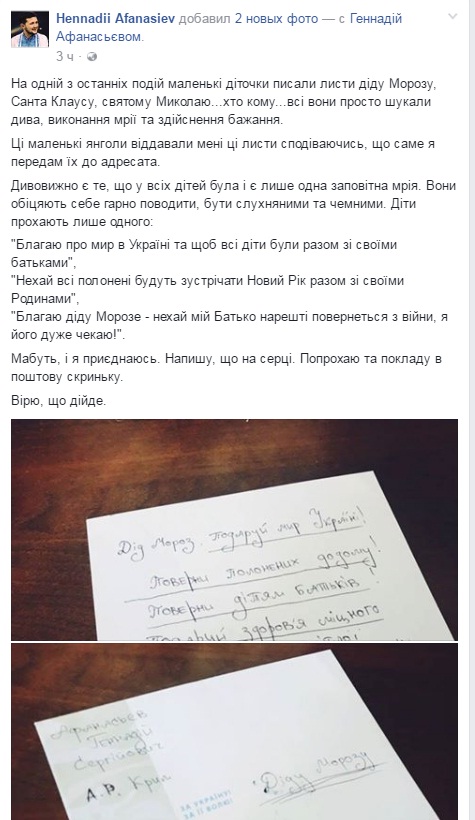 Hennadii Afanasiev добавил 2 новых фото — с Геннадій
Афанасьєвом.
3 ч ·
На одній з останніх подій маленькі діточки писали листи діду Морозу,
Санта Клаусу, святому Миколаю...хто кому...всі вони просто шукали
дива, виконання мрії та здійснення бажання.
Ці маленькі янголи віддавали мені ці листи сподіваючись, що саме я
передам їх до адресата.
Дивовижно є те, що у всіх дітей була і є лише одна заповітна мрія. Вони
обіцяють себе гарно поводити, бути слухняними та чемними. Діти
прохають лише одного:
"Благаю про мир в Україні та щоб всі діти були разом зі своїми
батьками",
"Нехай всі полонені будуть зустрічати Новий Рік разом зі своїми
Родинами",
"Благаю діду Морозе - нехай мій Батько нарешті повернеться з війни, я
його дуже чекаю!".
Мабуть, і я приєднаюсь. Напишу, що на серці. Попрохаю та покладу в
поштову скриньку.
Вірю, що дійде.
Дід Мороз. Подаруй мир Україні!
Поверни полонених додому!
Поверни дітям батьків!
Подаруй здоров'я міцного
Афанасьєв
Геннадій
Сергійович
А.Р. Крим
ЗА УКРАЇНУ
ЗА ЇЇ ВОЛЮ!
Діду Морозу